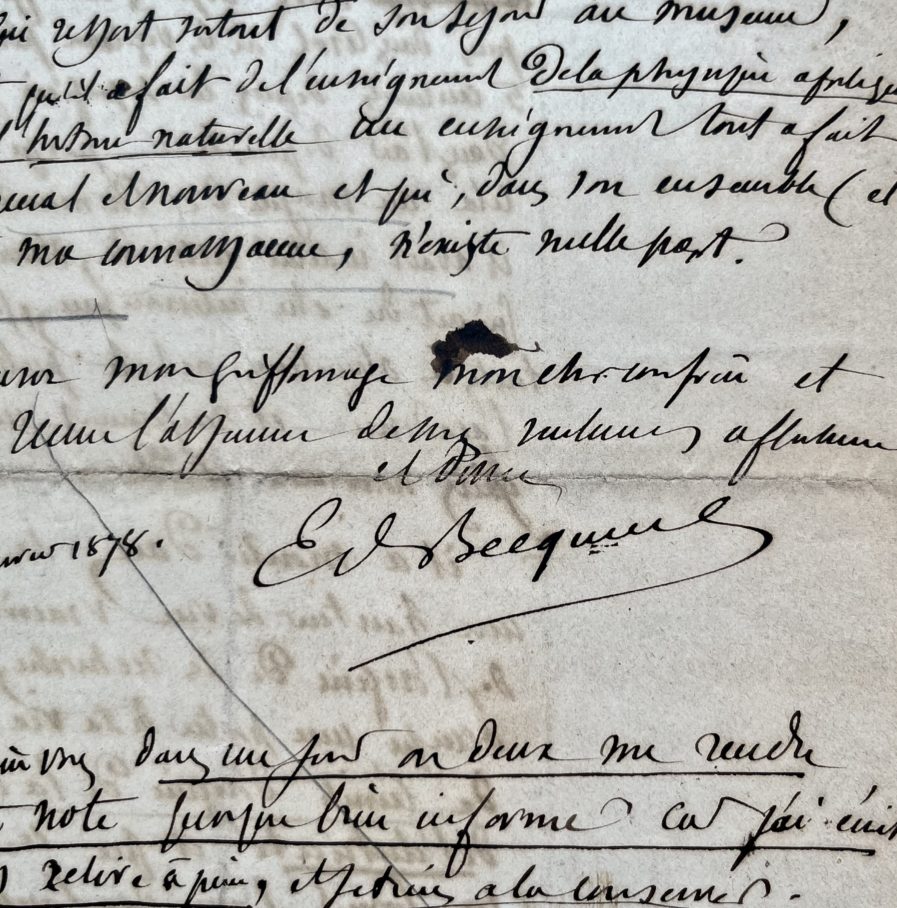 qui ressort surtout de son séjour au museum,
qu'il a fait de l'enseignement De la physique appliqu
l'histoire naturelle un enseignement tout a fait
et nouveau et qui, dans son ensemble (et
ma connaissance, n'existe nulle part.
mon griffonnage mon cher confrère et
l'assurance de mes affectueux
et dévoués
1878.
Ed Becquerel
vous dans un jour ou deux me rendre
note quoique bien informe car j'ai écrit
relire à peine, et je tiens a la conserver.